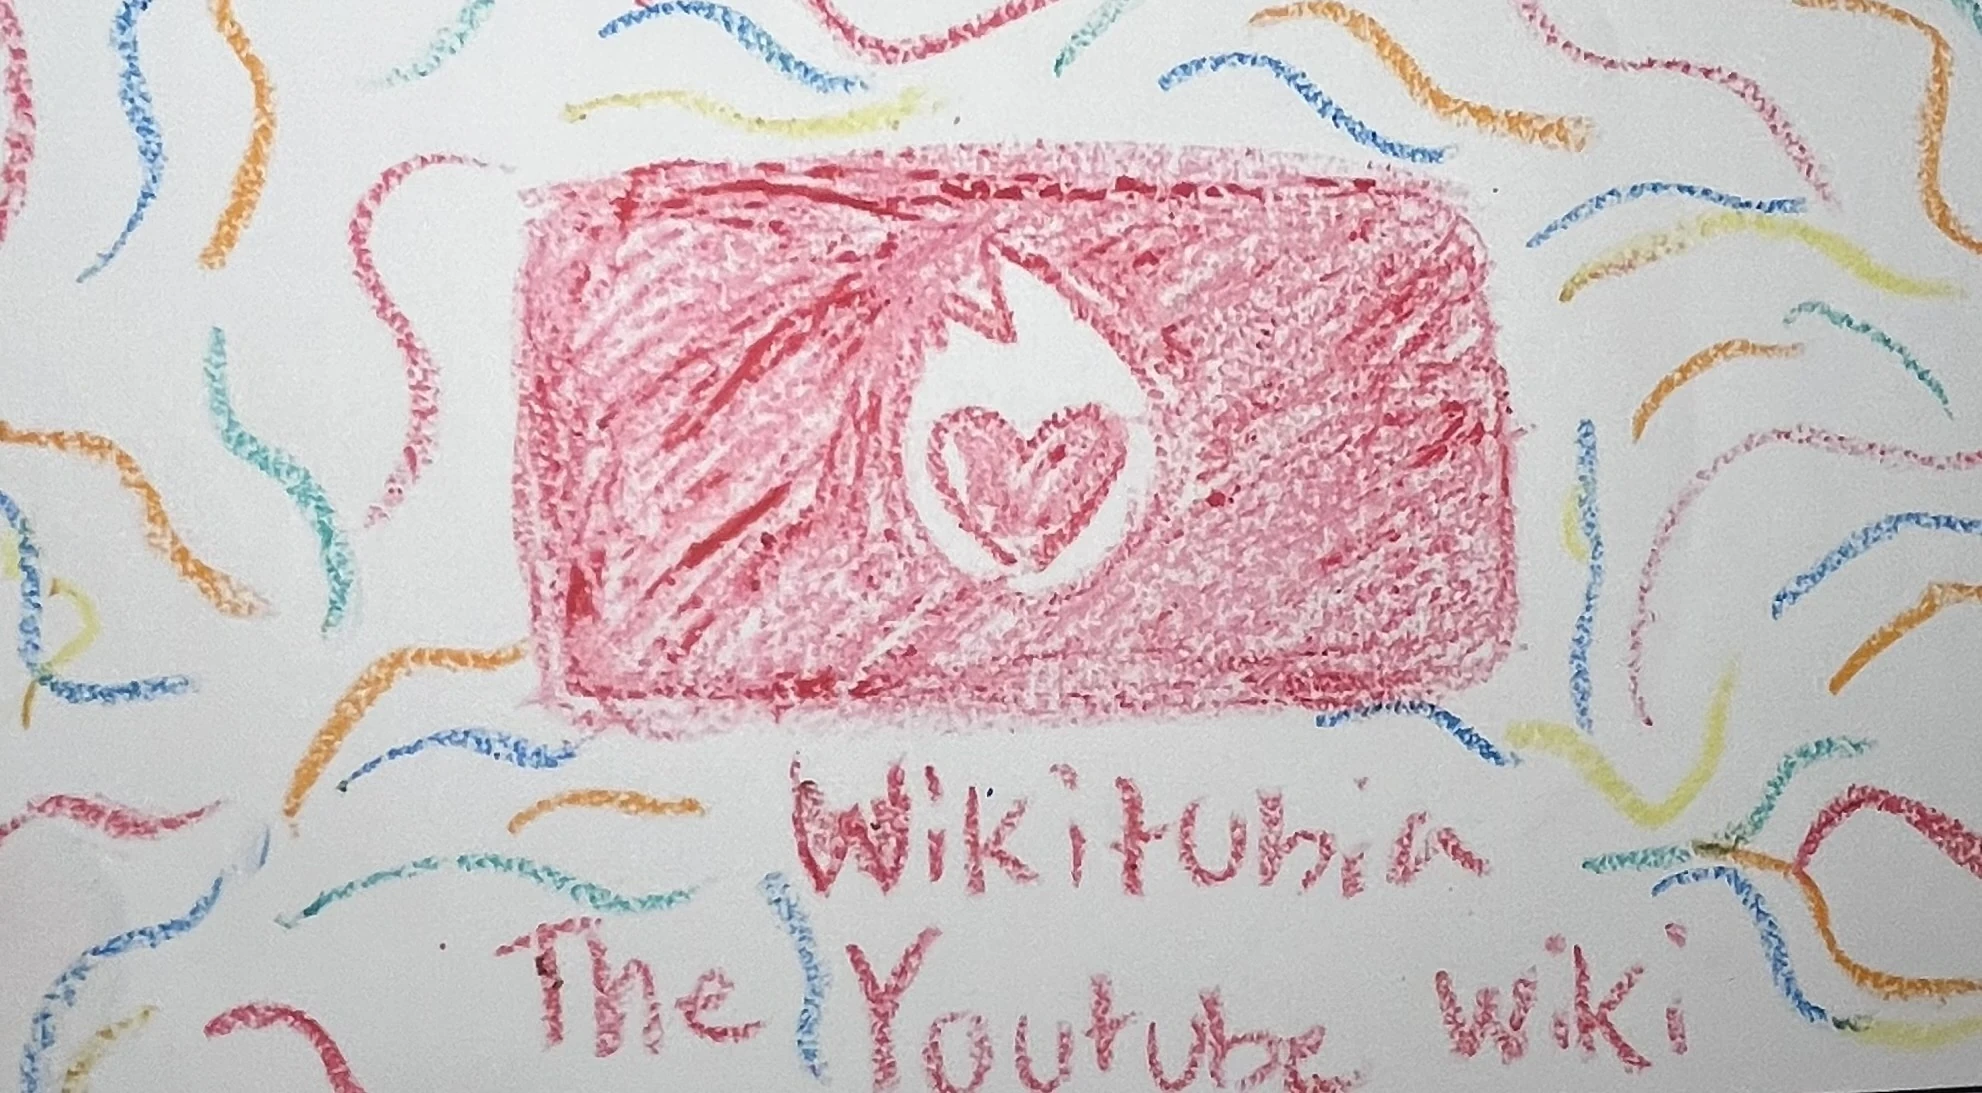 Wikitubia
The Youtube wiki